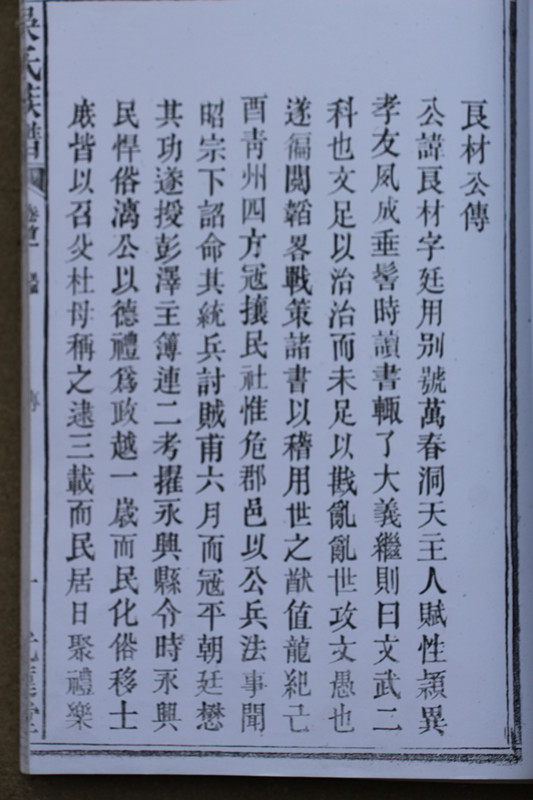 良材公傳
公諱良材字廷用別號萬春洞天主人賦性穎異
孝友夙成垂髫時讀書輙了大義繼則曰文武二
科也文足以治治而未足以戡亂亂世攻文愚也
遂徧閱韜畧戰策諸書以稽用世之猷值龍紀己
酉靑州四方寇攘民社惟危郡邑以公兵法事聞
昭宗下詔命其統兵討賊甫六月而寇平朝廷懋
其功遂授彭澤主簿連二考擢永興縣令時永興
民悍俗漓公以德禮爲政越一歲而民化俗移士
庶皆以召父杜母稱之逮三載而民居日聚禮樂
吳氏族譜
卷首
傳
一